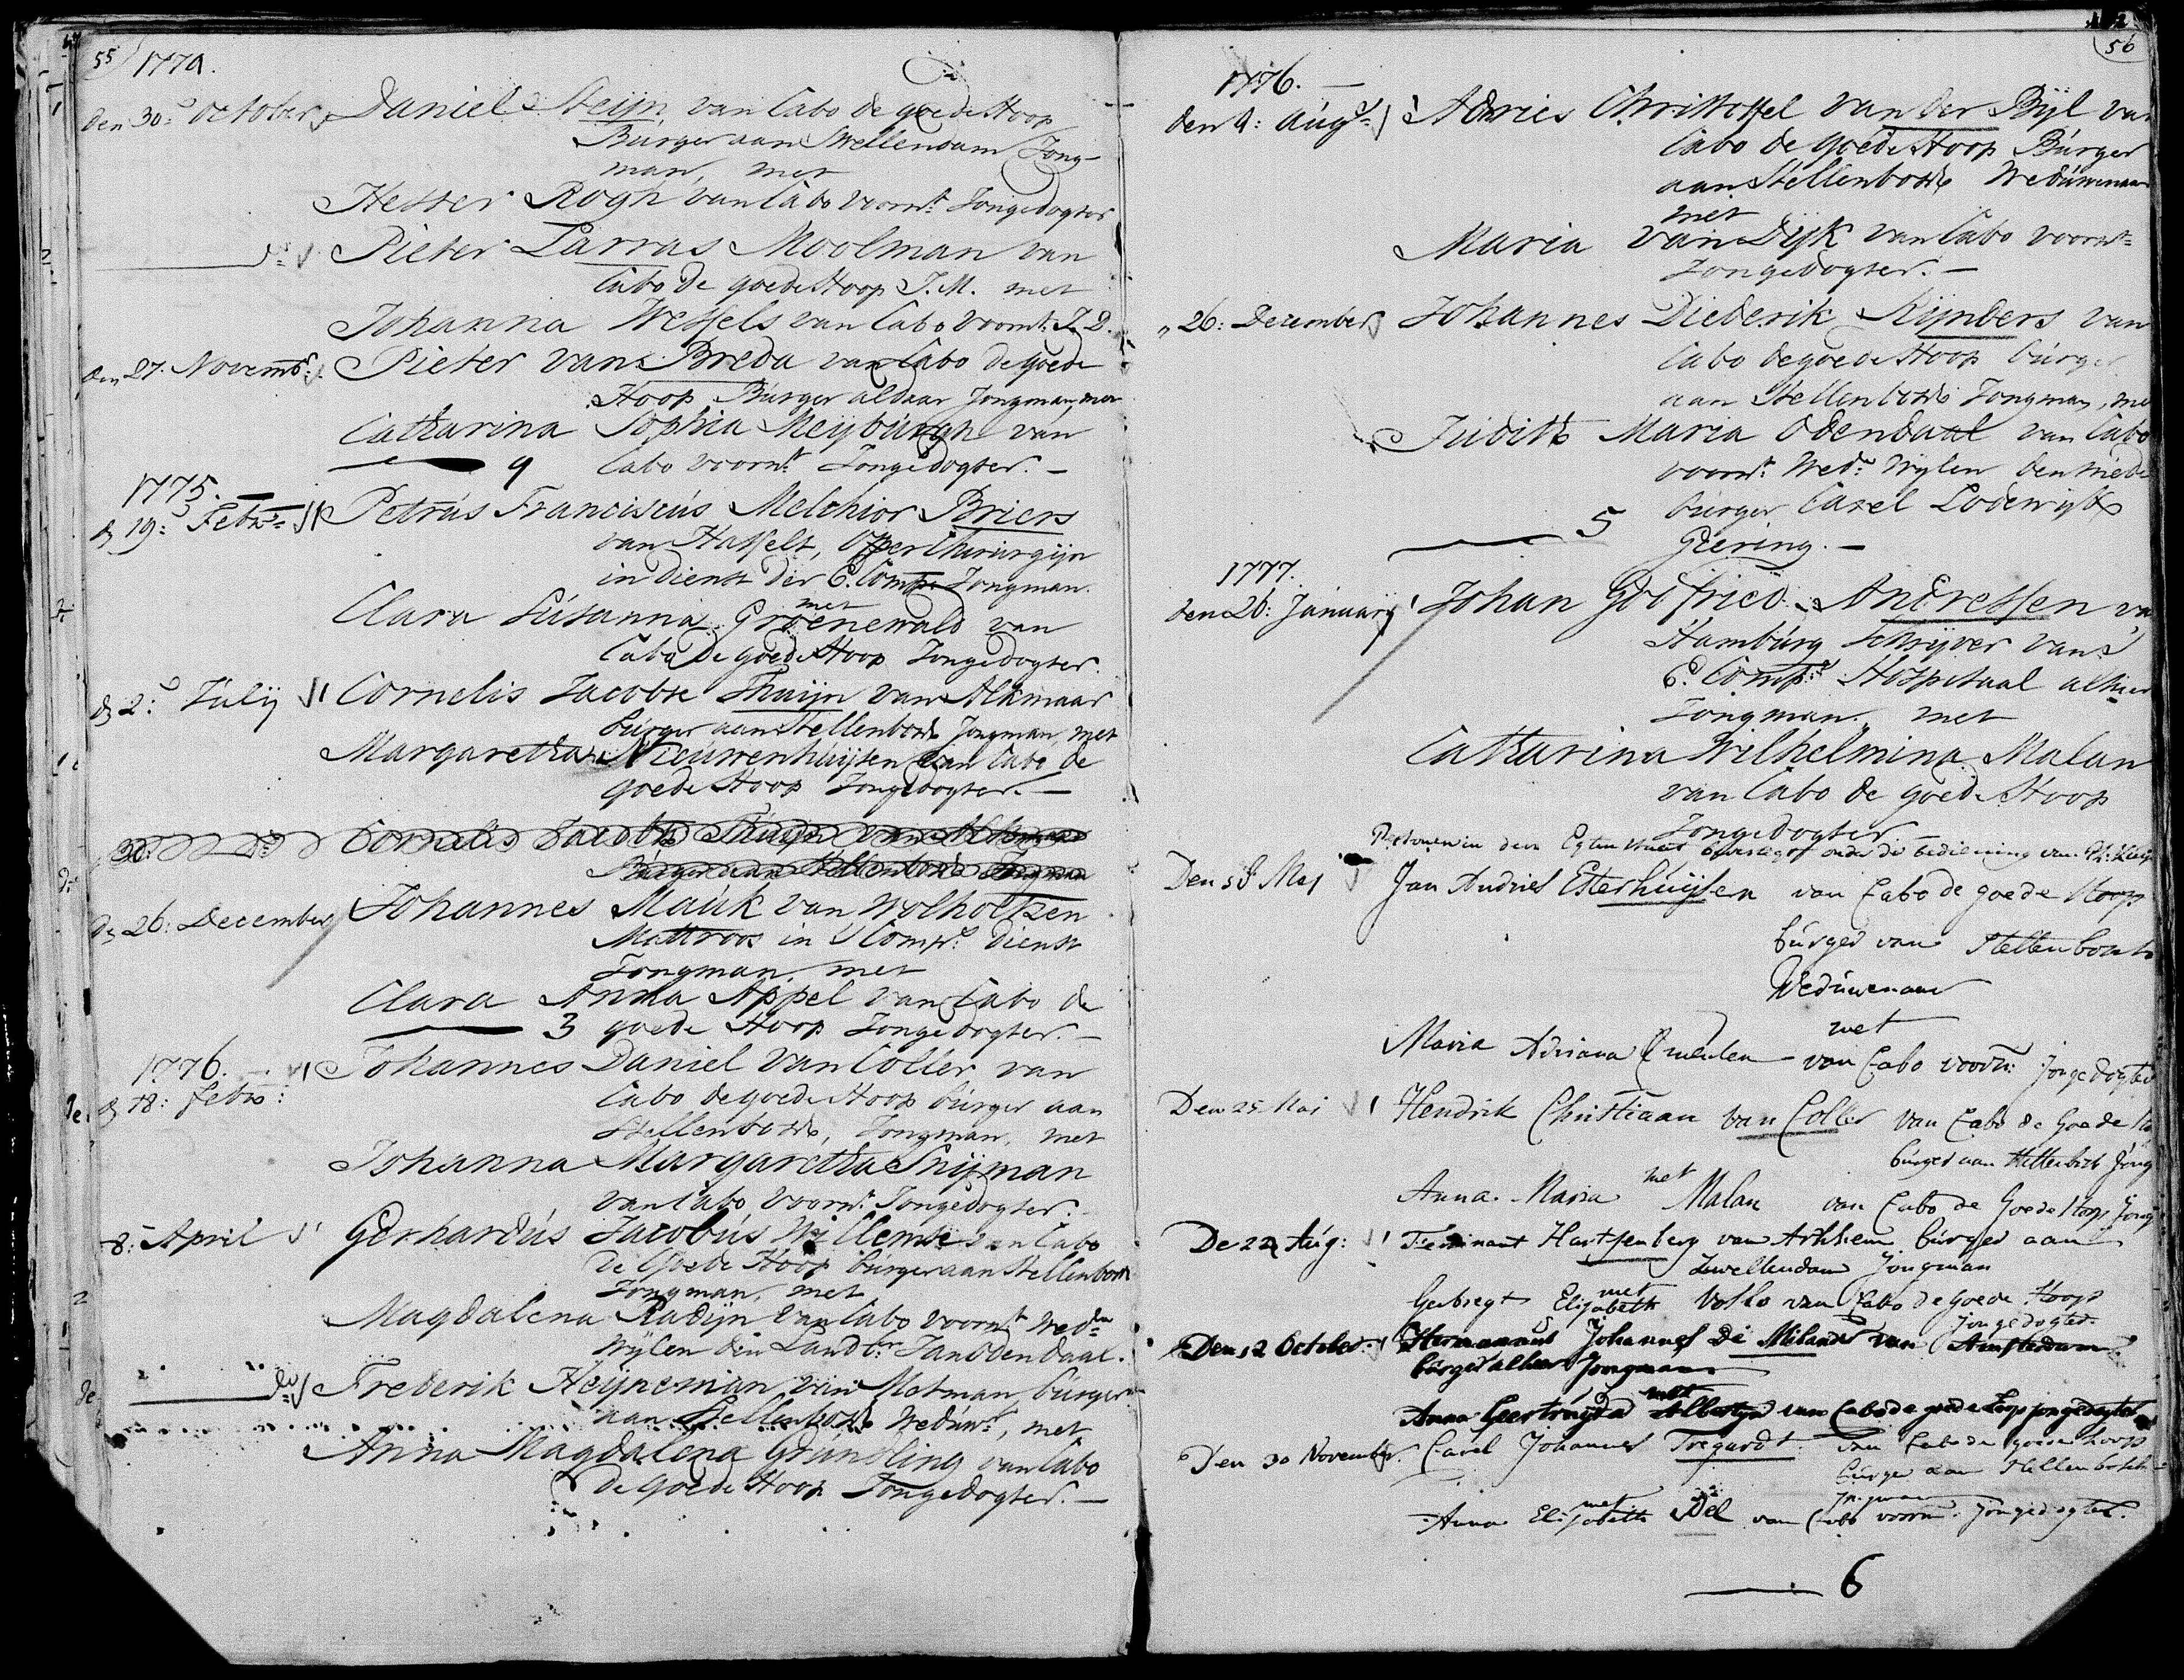 55
1774.
den 30:e October Daniel Steijn, van Cabo de goede Hoop
Burger aan Swellendam Jong-
man, met
Hester Rogh van Cabo voornt. Jongedogter
do. Pieter Larras Moolman van
Cabo de goede Hoop J.M. met
Johanna Wessels van Cabo voornt. J.D.
den 27. Novemb: Pieter van Breda van Cabo de goede
Hoop Burger aldaar Jongman, met
Catharina Sophia Meijburgh van
9 Cabo voornt. Jongedogter. -
1775. -
d 19: Febr: Petrus Franciscus Melchior Briers
van Hasselt, Opper Chirurgijn
in dienst der E. Comp: Jongman.
met
Clara Susanna Groenewald van
Cabo de goede Hoop Jongedogter.
d 2:e Julij Cornelis Jacobse Thuijn van Alkmaar
burger aan Stellenbosch Jongman, met
Margaretha Nieuwenhuijsen van Cabo de
goede Hoop Jongedogter. -
Cornelis Jacobse Thuijn van Alkmaar
Burger aan Stellenbosch Jongman
d 26: December Johannes Mauk van Wolholtzen
Mattroos in 's Comps. dienst
Jongman, met
Clara Anna Appel van Cabo de
3 goede Hoop Jongedogter. -
1776. -
d 18: Febr: Johannes Daniel van Coller van
Cabo de goede Hoop burger aan
Stellenbosch, Jongman, met
Johanna Margaretha Snijman
van Cabo voornt. Jongedogter.
8: April Gerhardus Jacobus Willemse van Cabo
de Goede Hoop burger aan Stellenbosch
Jongman, met
Magdalena Radijn van Cabo voornt. Wed:
Wijlen den Landbr. Jan Odendaal.
do Frederik Heijneman van burger
aan Stellenbosch Weduwr., met
Anna Magdalena Grundling van Cabo
de goede Hoop Jongedogter. -
56
1776. -
den 4: Aug: Adries Christoffel van der Bijl van
Cabo de goede Hoop Burger
aan Stellenbosch Weduwenaar
met
Maria van Dijk van Cabo voornt.
Jongedogter. -
" 26: December Johannes Diederik Rijnders van
Cabo de goede Hoop burger
aan Stellenbosch Jongman, met
Judith Maria Odendaal van Cabo
voornt. Wed: Wijlen den mede
burger Carel Lodewijk
5 Giering. -
1777.
den 26: Januarij Johan Godfried Andressen van
Hamburg Schrijver van 's
E. Comps. Hospitaal alhier
Jongman, met
Catharina Wilhelmina Malan
van Cabo de goede Hoop
Jongedogter.
Persoonen in den Egten staat bevestigt onder die bediening van
Den 18 Mei Jan Andries Esterhuijsen van Cabo de goede Hoop
burger van Stellenbosch
Weduwenaar
met
Maria Adriana van Cabo voorn: jongedogter
Den 25 Mai Hendrik Christiaan van Coller van Cabo de Goede Ho
burger aan Stellenbosch Jong
met
Anna Maria Malan van Cabo de Goede Hoop Jong
De 24 Aug: Ferdinant Hartsenberg van Arhhem burger aan
Zwellendam Jongman
met
Gerbregt Elisabeth Vollo van Cabo de goede Hoop
jongedogter.
Den 12 October Hermannus Johannes De Milander van Amsterdam
burger alhier Jongman
met
Anna Geertruyda Albertyn van Cabo de goede Hoop jongedogter
Den 30 November. Carel Johannes Tregardt van Cabo de goede hoop
burger aan Stellenbosch
met Jongman
Anna Elisabeth Nel van Cabo voorn. Jongedogter.
6